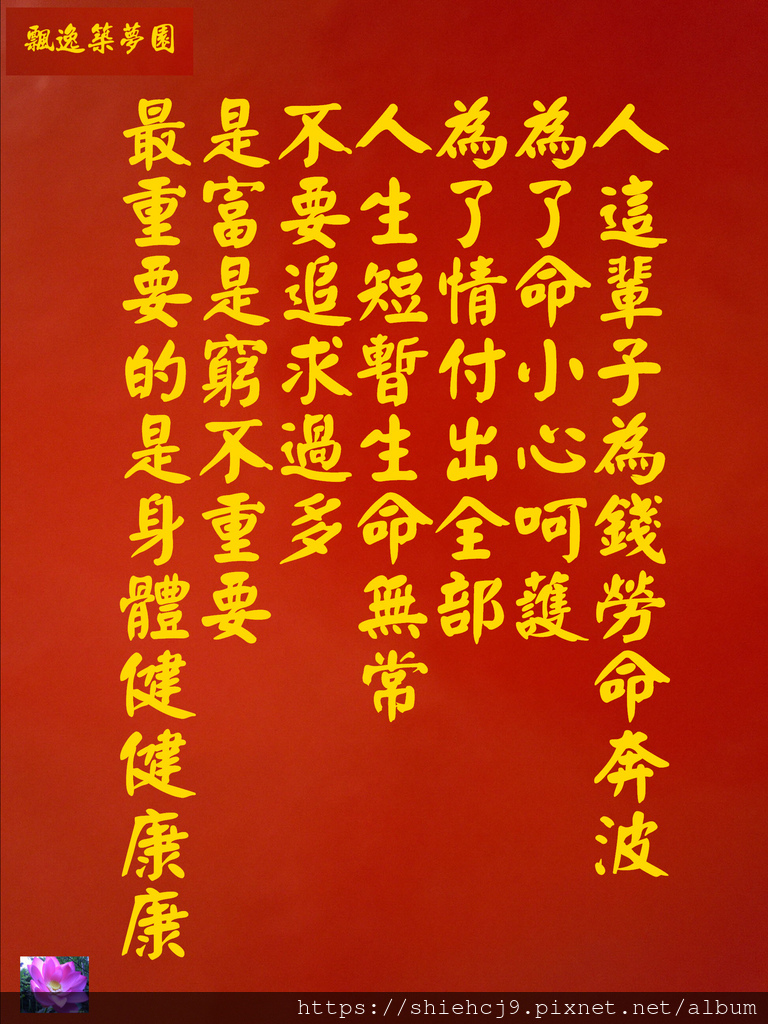 飄逸築夢園
人這輩子為錢勞命奔波
為了命小心呵護
為了情付出全部
人生短暫生命無常
不要追求過多
是富是窮不重要
最重要的是身體健健康康
https://shiehcj9.pixnet.net/album